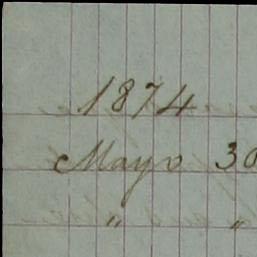 1874
Mayo 30
" "